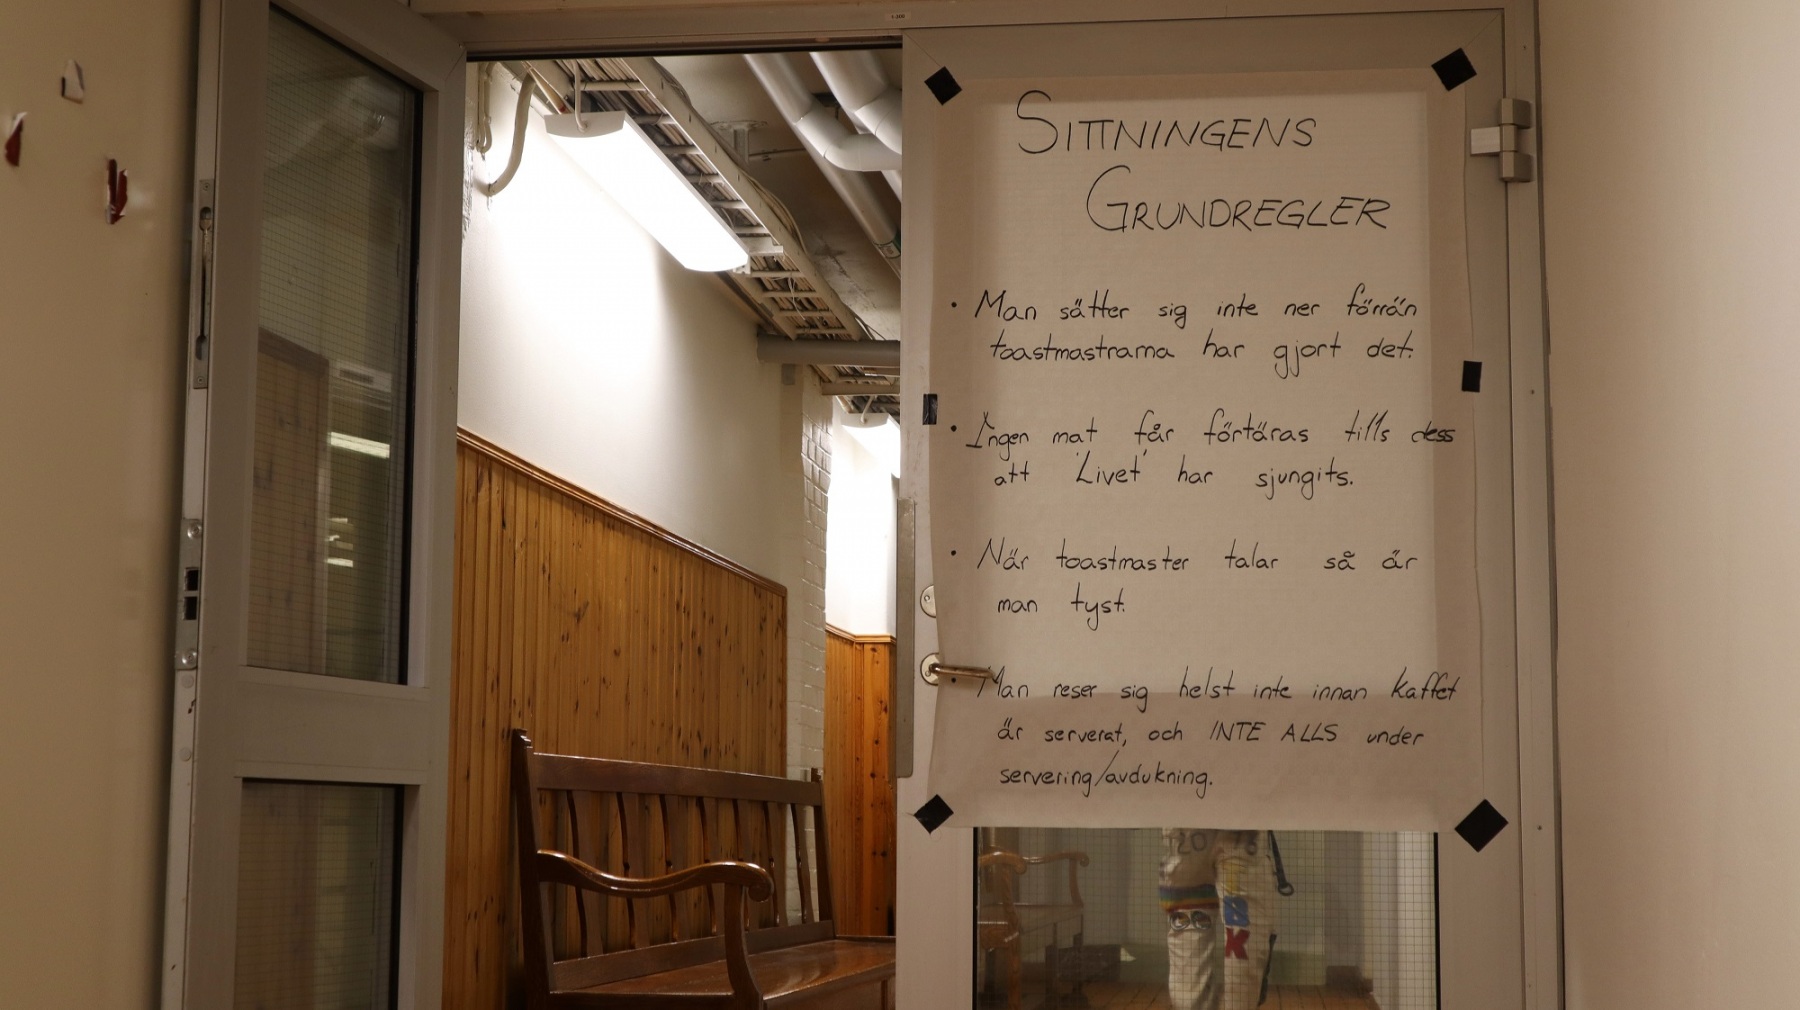 SITTNINGENS
GRUNDREGLER
• Man sätter sig inte ner förrän
toastmastrarna har gjort det.
• Ingen mat får förtäras tills dess
att 'Livet' har sjungits.
• När toastmaster talar så är
man tyst.
• Man reser sig helst inte innan kaffet
är serverat, och INTE ALLS under
servering/avdukning.